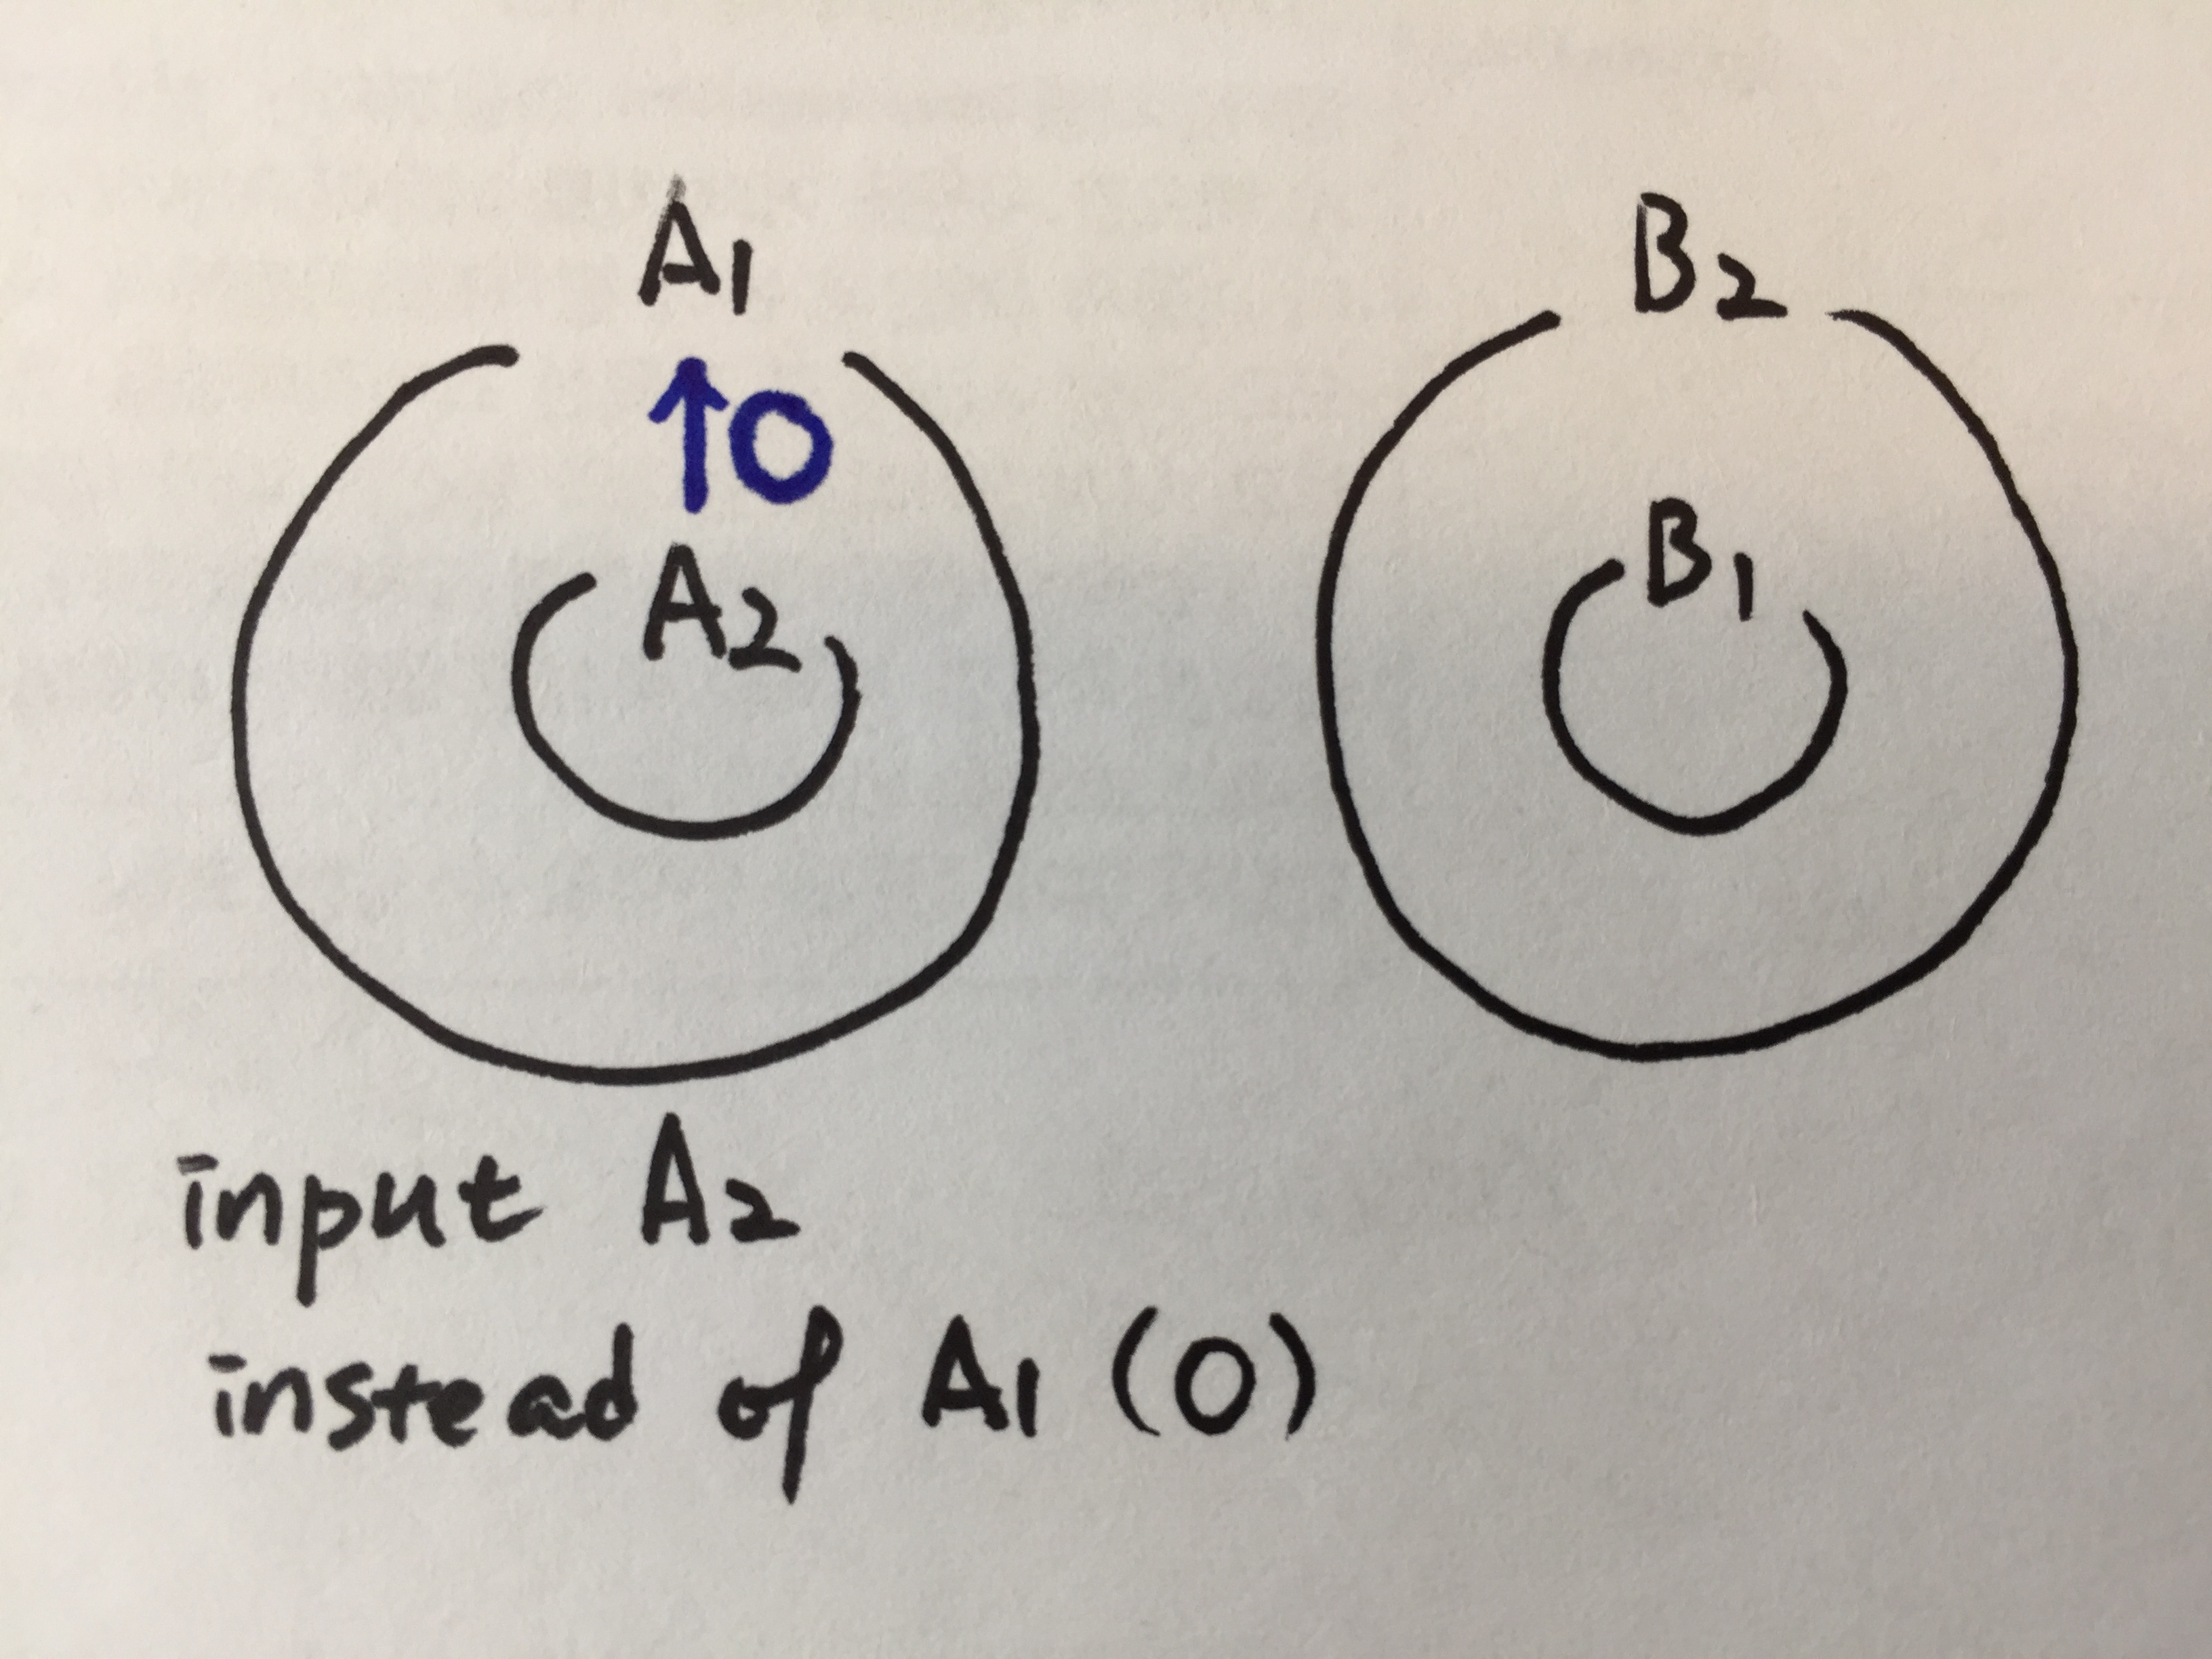 A1
B2
↑0
A2
B1
input A2
instead of A1 (0)